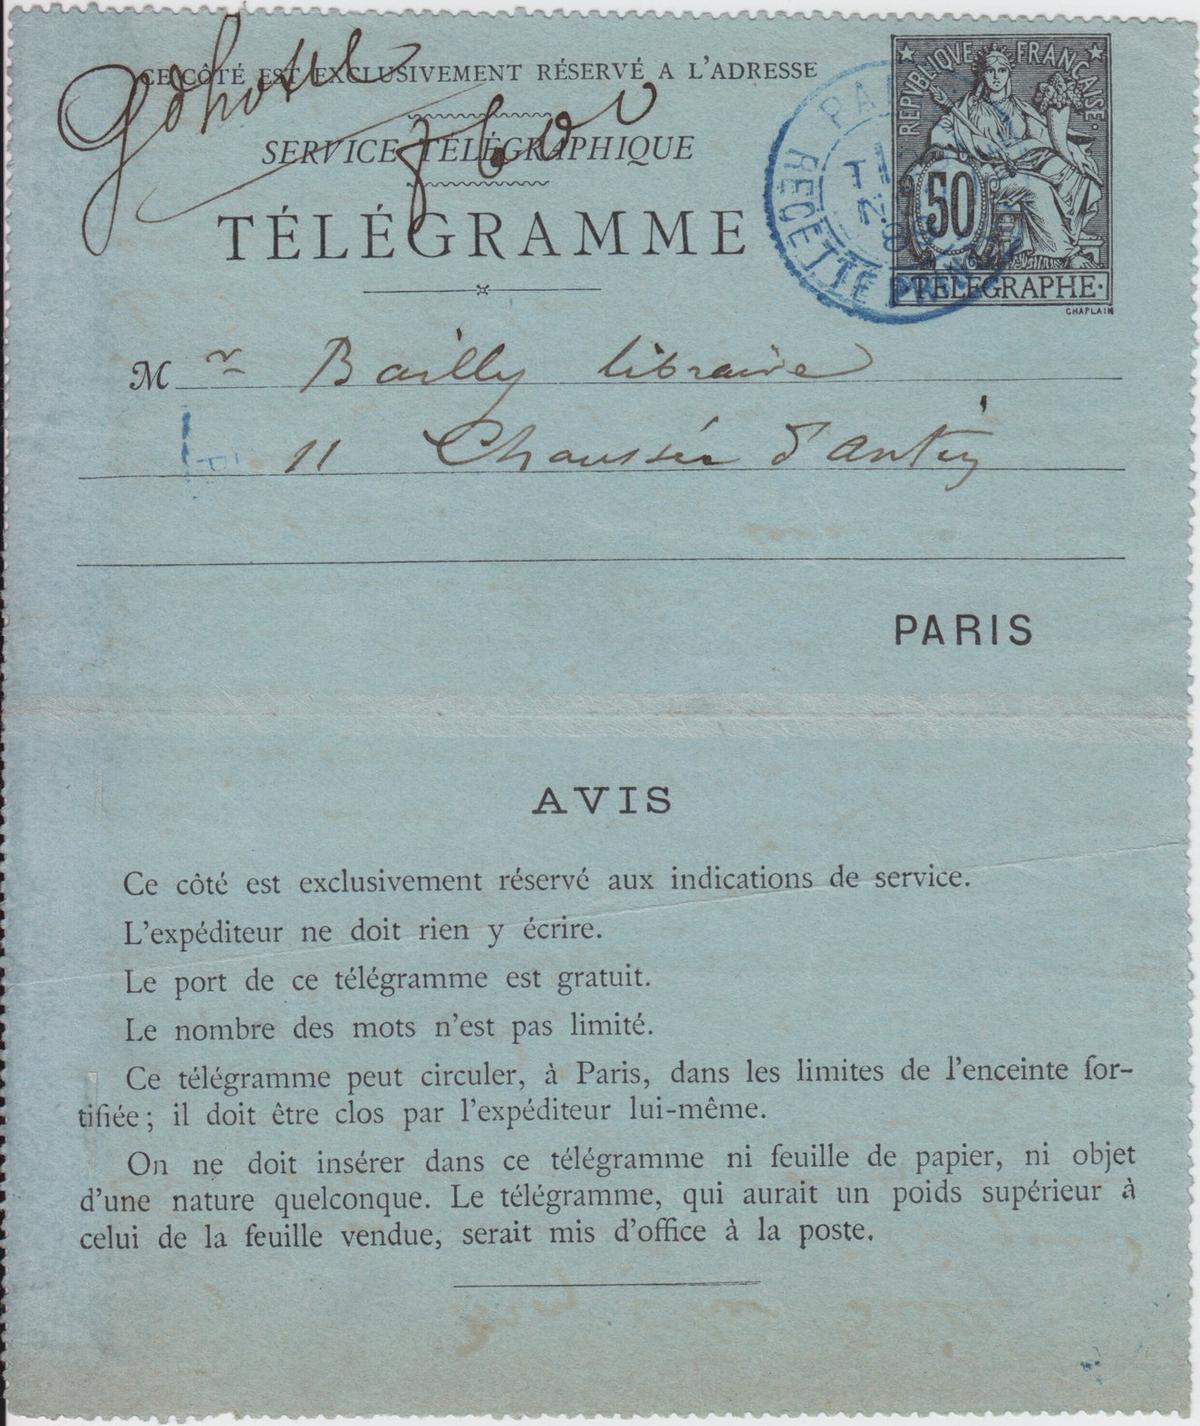 CE CÔTÉ EST EXCLUSIVEMENT RÉSERVÉ A L'ADRESSE
SERVICE TÉLÉGRAPHIQUE
TÉLÉGRAMME
REPUBLIQUE FRANÇAISE
50
TÉLÉGRAPHE
CHAPLAIN
RECETTE PRIN
Mr Bailly libraire
11 Chaussée d'Antin
PARIS
AVIS
Ce côté est exclusivement réservé aux indications de service.
L'expéditeur ne doit rien y écrire.
Le port de ce télégramme est gratuit.
Le nombre des mots n'est pas limité.
Ce télégramme peut circuler, à Paris, dans les limites de l'enceinte for-
tifiée; il doit être clos par l'expéditeur lui-même.
On ne doit insérer dans ce télégramme ni feuille de papier, ni objet
d'une nature quelconque. Le télégramme, qui aurait un poids supérieur à
celui de la feuille vendue, serait mis d'office à la poste.